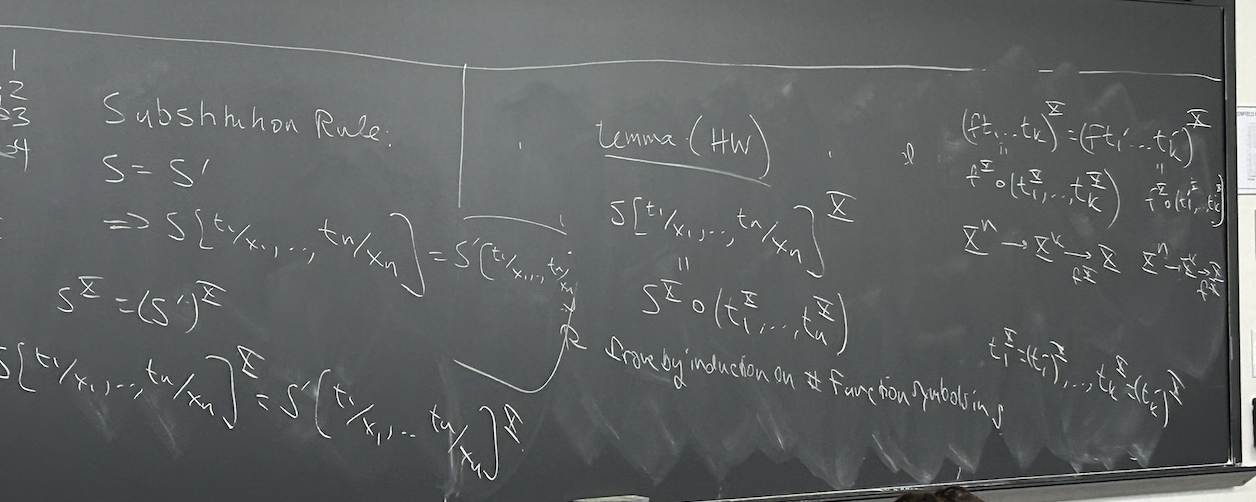 1
2
3
4
Substitution Rule:
S = S'
=> S[t₁/x₁,..., tₙ/xₙ] = S'[t₁/x₁,..., tₙ/xₙ]
S^X = (S')^X
S[t₁/x₁,..., tₙ/xₙ]^X = S'[t₁/x₁,... tₙ/xₙ]^X
Lemma (HW)
S[t₁/x₁,..., tₙ/xₙ]^X
=
S^X o (t₁^X,..., tₙ^X)
Prove by induction on # function symbols in S
(ft₁...tₖ)^X = (ft₁'...tₖ')^X
= =
f^X o (t₁^X,...,tₖ^X) f^X o (t₁'^X,...,tₖ'^X)
X^n → X^k → X X^n → X^k → X
f^X f^X
t₁^X = (t₁')^X,..., tₖ^X = (tₖ')^X